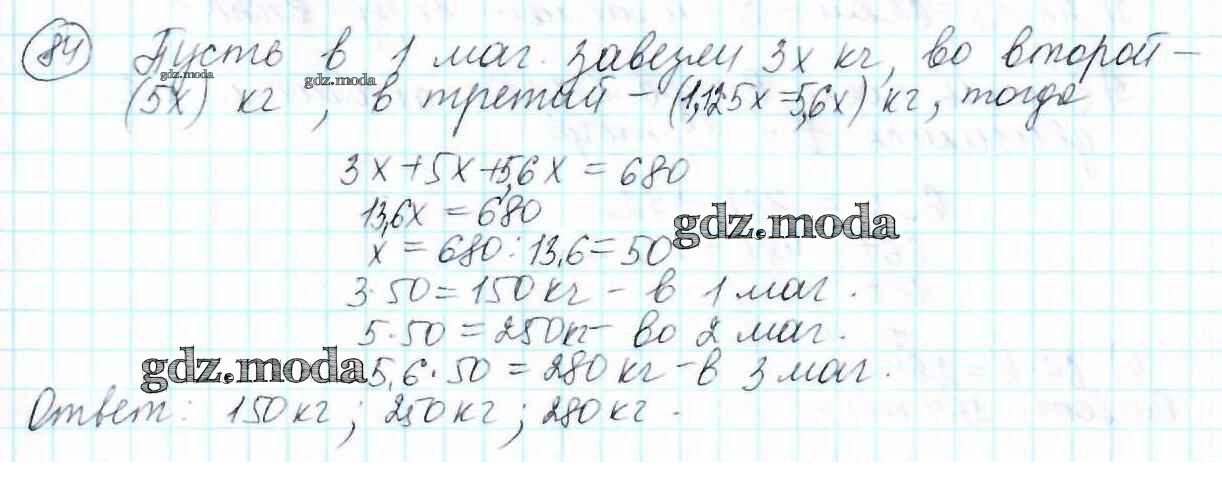 84 Пусть в 1 маг. завезли 3x кг, во второй –
gdz.moda gdz.moda
(5x) кг, в третий – (1,12·5x=5,6x) кг, тогда
3x+5x+5,6x = 680
13,6x = 680
gdz.moda
x = 680 : 13,6 = 50
3·50 = 150 кг – в 1 маг.
5·50 = 250 кг – во 2 маг.
gdz.moda
5,6·50 = 280 кг – в 3 маг.
Ответ: 150 кг; 250 кг; 280 кг.